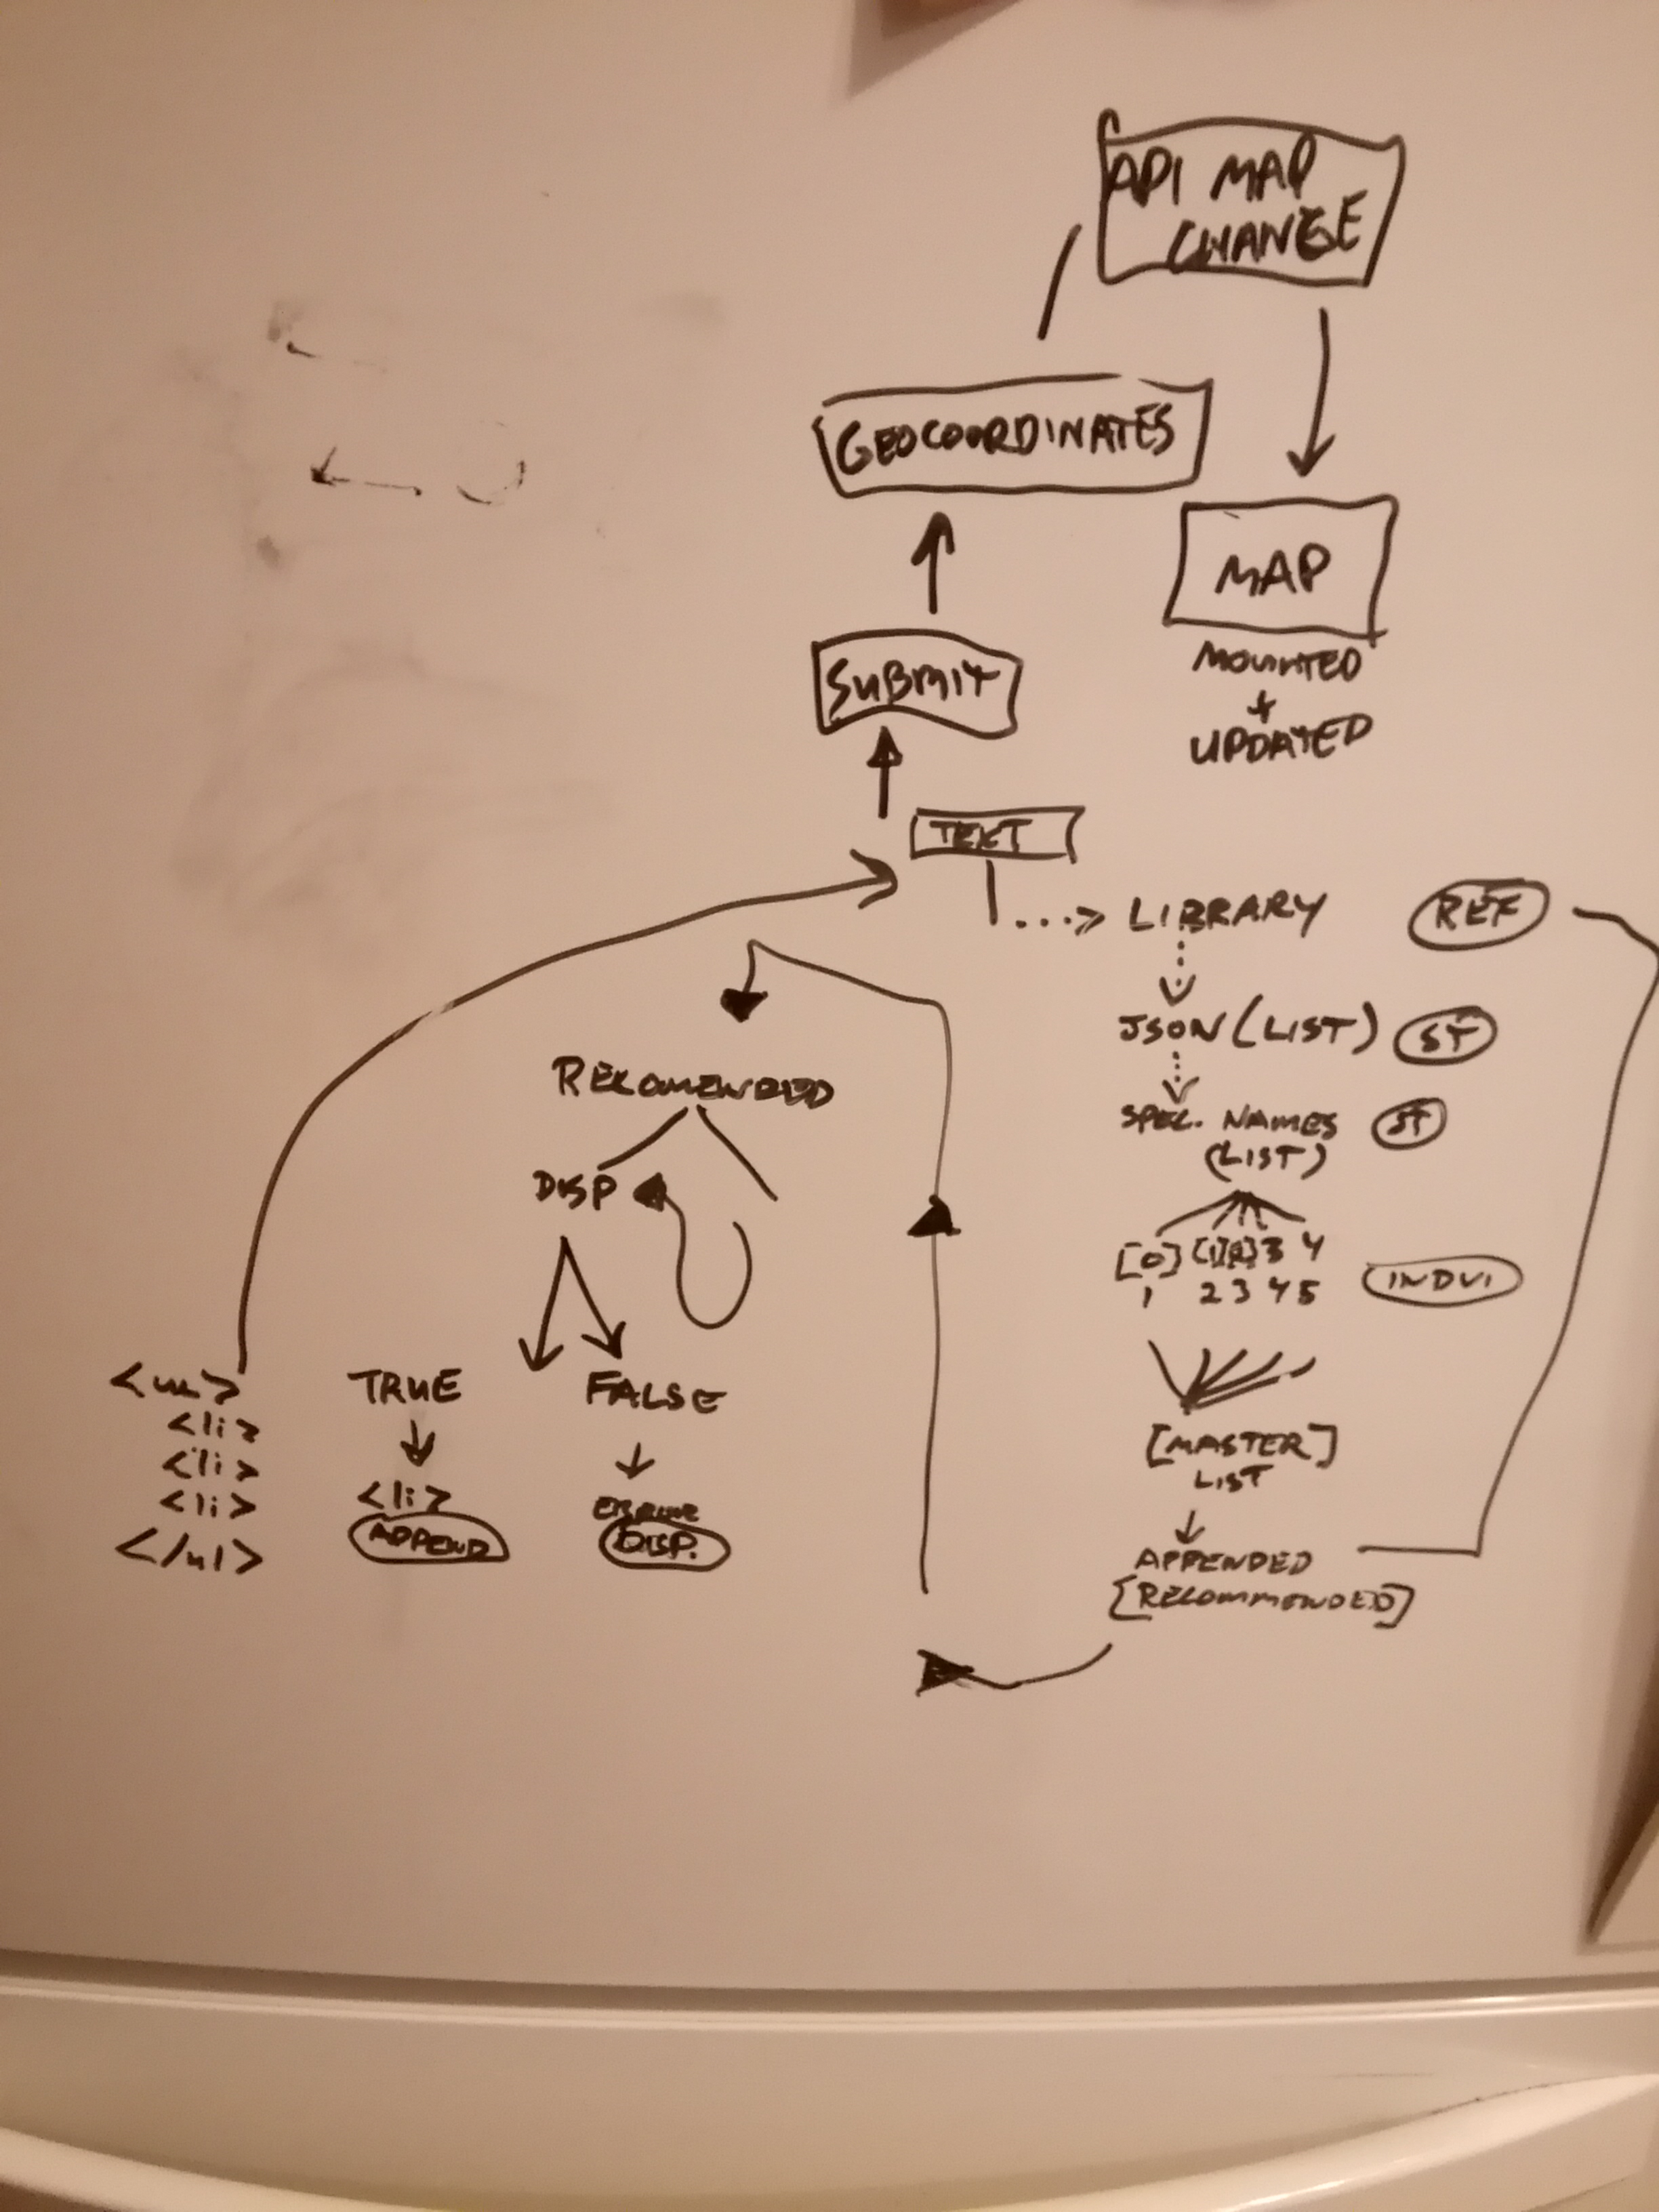 API MAP
CHANGE
GEOCOORDINATES
MAP
MOUNTED
+
UPDATED
SUBMIT
TEXT
...> LIBRARY
REF
JSON (LIST)
ST
SPEC. NAMES
(LIST)
ST
[0] [1] 3 4
1 2 3 4 5
INDVI
[MASTER]
LIST
APPENDED
[RECOMMENDED]
RECOMENDED
DISP
TRUE
FALSE
<li>
APPEND
DISP.
<ul>
<li>
<li>
<li>
</ul>